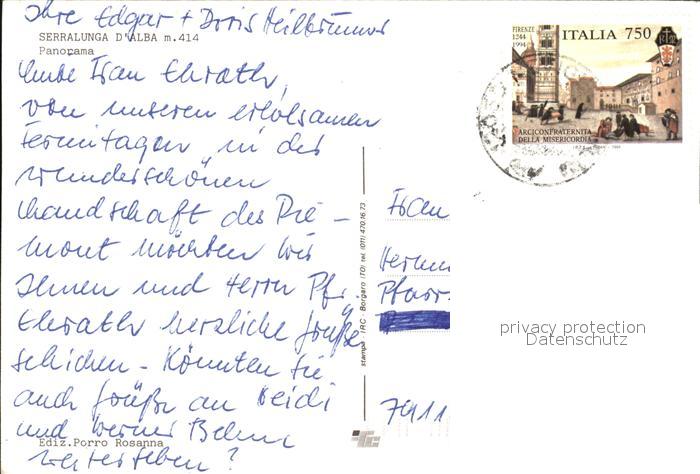 Ihre Edgar + Doris Heilbrunner
SERRALUNGA D'ALBA m.414
Panorama
Liebe Frau Ehrath,
von unseren erholsamen
Ferientagen in der
wunderschönen
Landschaft des Pie-
mont möchten wir
Ihnen und Herrn Pfr.
Ehrath herzliche Grüße
schicken. Könnten Sie
auch Grüße an Heidi
und Werner Behm
weitergeben?
Ediz.Porro Rosanna
stampa IRC - Borgaro (TO) tel. (011) 470.16.73
FIRENZE
1244
1994
ITALIA 750
ARCICONFRATERNITA
DELLA MISERICORDIA
Frau
Pfarr
privacy protection
Datenschutz